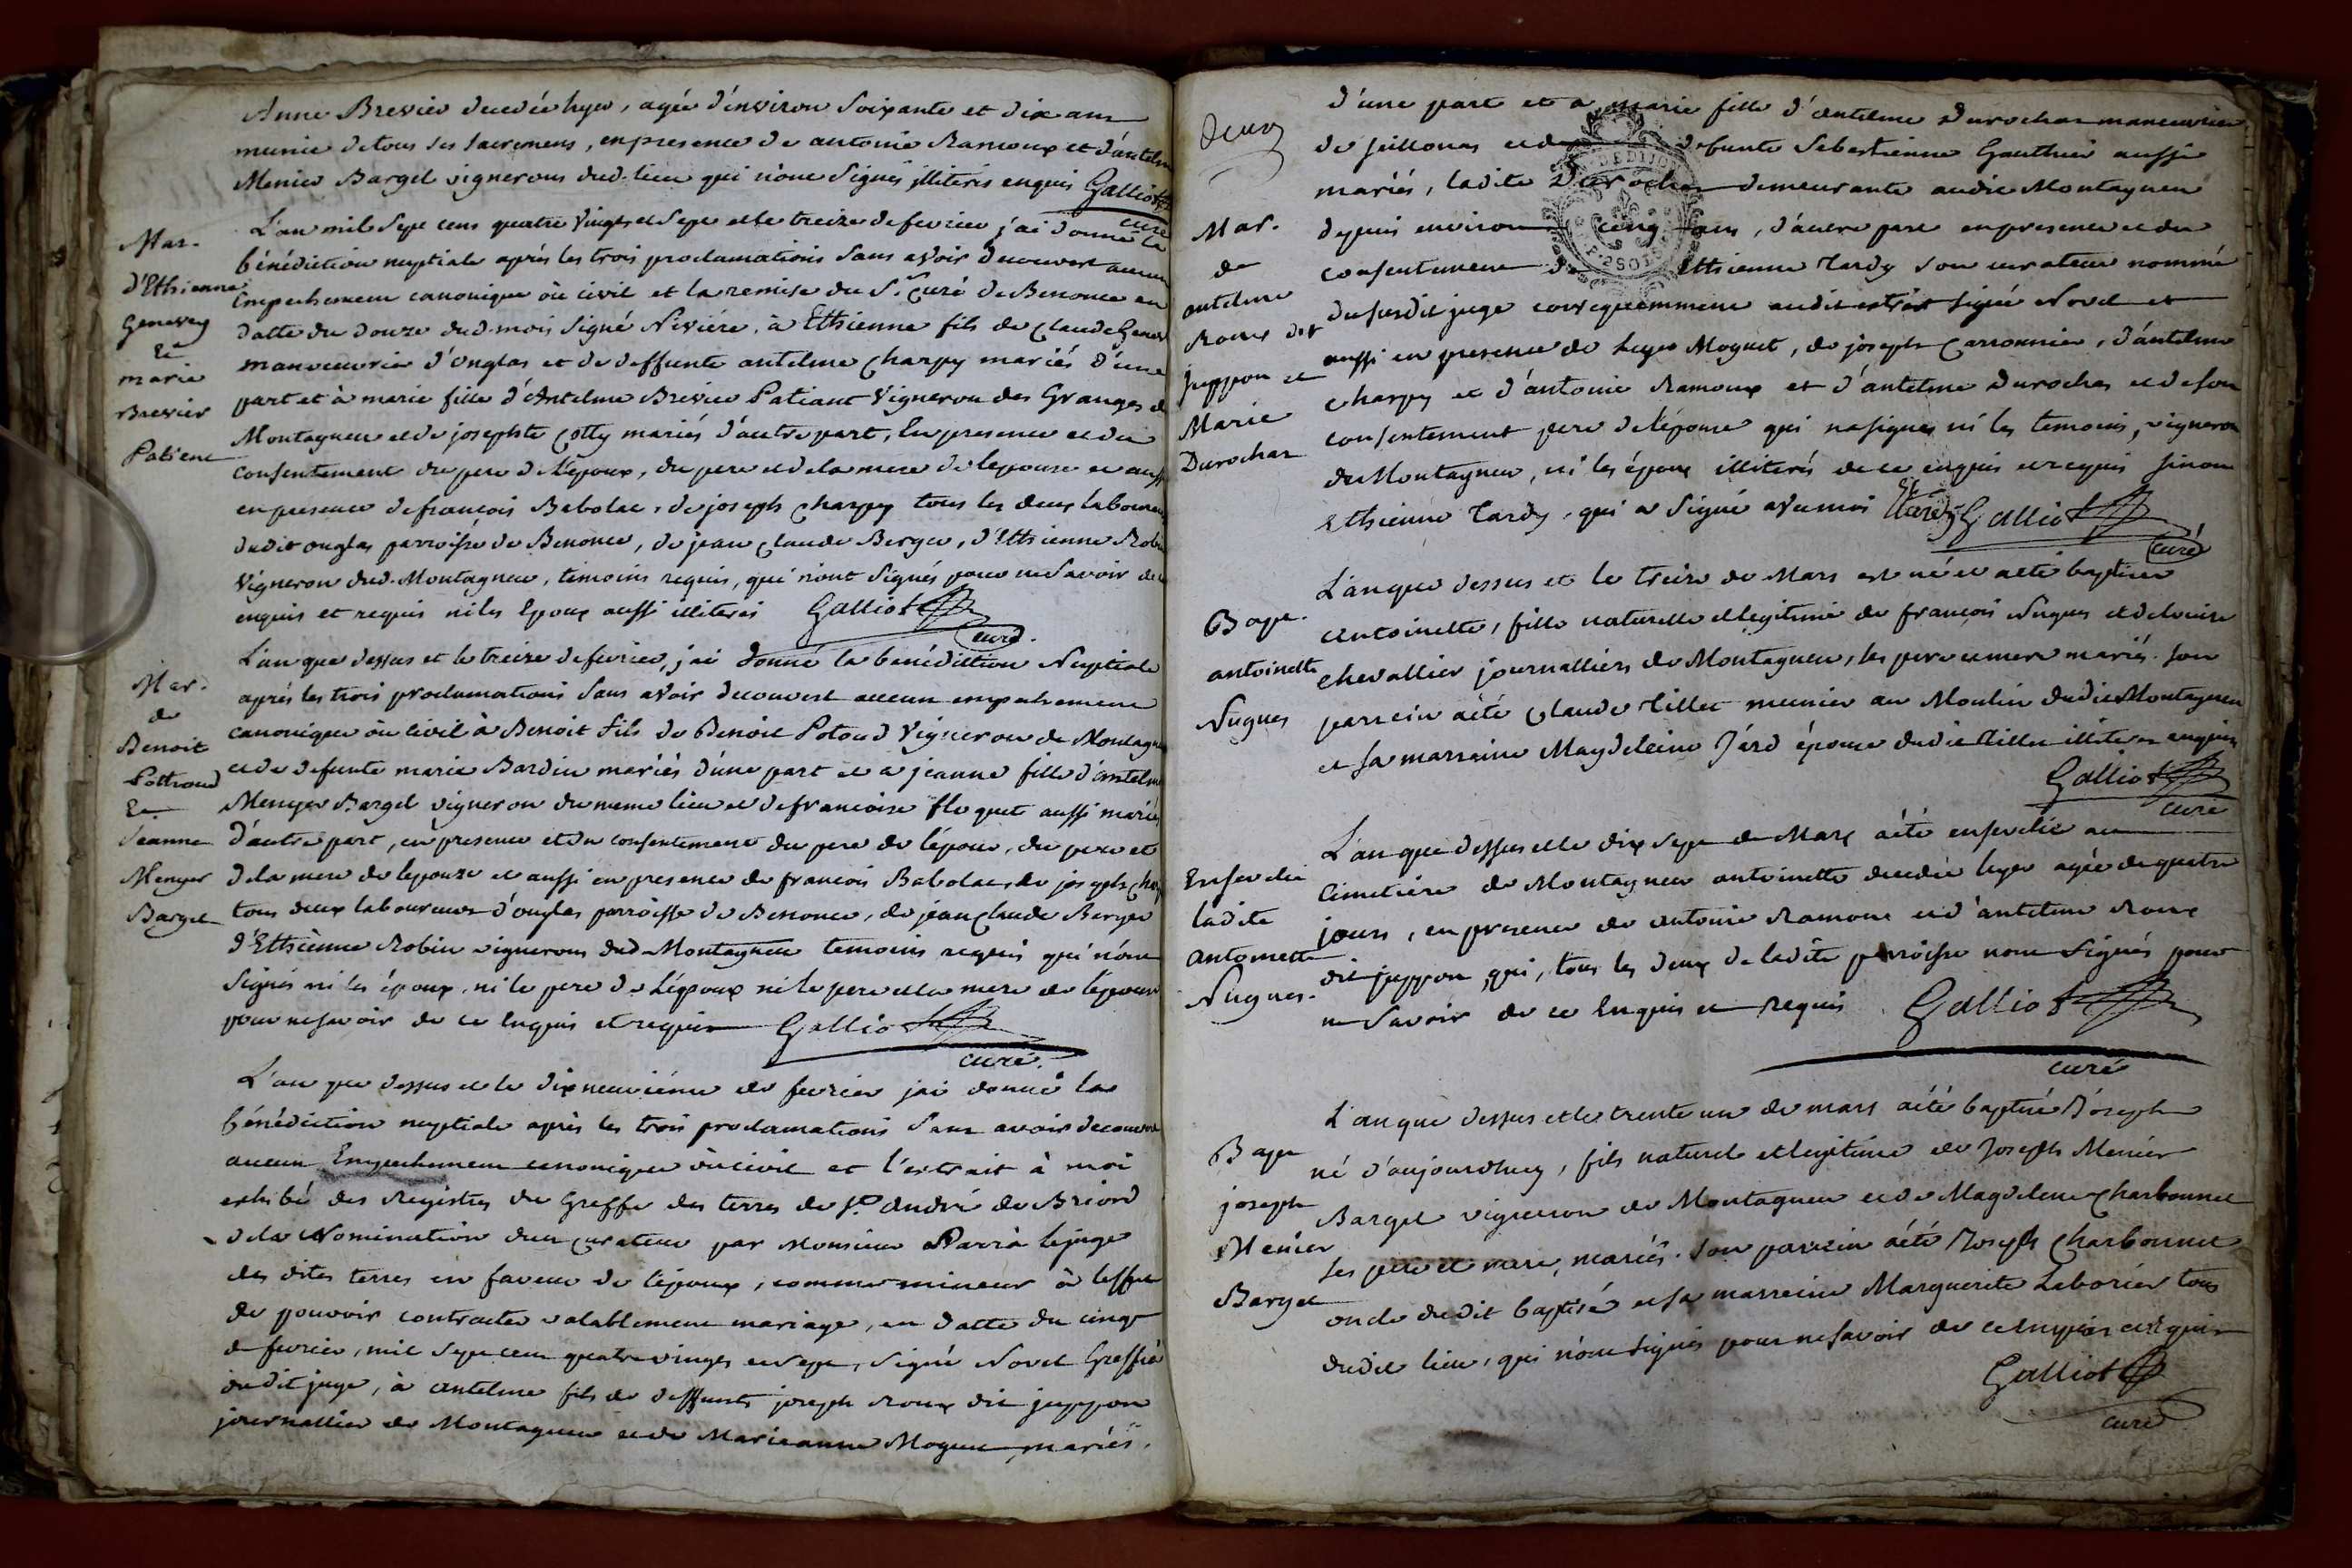 Anne Brevier decedée hyer, agée d'environ soixante et dix ans
munie de tous ses sacremens, en presence de antoine Ramoux et d'antelme
Menier Bargel vignerons dud. lieu qui n'ont signés illiterés enquis Galliot
curé
Mar.
d'Ethienne
Genevey
Et
marie
Brevier
Patient
L'an mil sept cens quatre vingts et sept et le treize de fevrier j'ai donné la
bénédiction nuptiale aprés les trois proclamations sans avoir decouvert aucun
empechement canonique où civil et la remise du Sr. Curé de Benonce en
datte du douze dud. mois signé Niviére, à Ethienne fils de Claude Genevey
manoeuvrier d'Onglas et de deffunte antelme Charpy mariés d'une
part et à marie fille d'Antelme Brevier Patiant Vigneron des Granges de
Montagneu et de josephte Cotty mariés d'autre part, En presence et du
consentement du pere de l'Epoux, du pere et de la mere de lepouse et aussi
en presence de françois Babolat, de joseph Charpy tous les deux laboureurs
dudit onglas parroisse de Benonce, de jean Claude Berger, d'Ethienne Robin
Vigneron dud. Montagneu, temoins requis, qui n'ont signés pour ne savoir de ce
enquis et requis ni les Epoux aussi illiterés Galliot
curé.
Mar.
de
Benoit
Pottroud
Et
Jeanne
Menyer
Bargel
L'an que dessus et le treize de fevrier, j'ai donné la benédiction Nuptiale
aprés les trois proclamations sans avoir decouvert aucun empechement
canonique où civil à Benoit fils de Benoit Potoud Vigneron de Montagneu
et de defunte marie Bardin mariés d'une part et a jeanne fille d'antelme
Menyer Bargel vigneron du meme lieu et de francoise floquet aussi mariés
d'autre part, en presence et du consentement du pere de lépoux, du pere et
de la mere de lepouze et aussi en presence de francois Babolat, de joseph Charpy
tous deux laboureurs d'onglas parroisse de Benonce, de jean Claude Berger
d'Ethienne Robin vignerons dud. Montagneu temoins requis qui n'ont
signés ni les époux, ni le pere de L'époux ni le pere et la mere de lépouse
pour ne savoir de ce Enquis et requis Galliot
curé.
L'an que dessus et le dix neuviéme de fevrier j'ai donné la
bénédiction nuptiale aprés les trois proclamations sans avoir decouvert
aucun Empechement canonique où civil et l'extrait à moi
exhibé des Registres du Greffe des terres de St. André de Briord
de la Nomination d'un Curateur par Monsieur Parra le juge
des dites terres en faveur de l'époux, comme mineur à l'effet
de pouvoir contracter valablement mariage, en datte du cinq
de fevrier, mil sept cent quatre vingts et sept, signé Novel Greffier
dudit juge, à antelme fils de deffunts joseph Roux dit juppon
journallier de Montagneu et de Marieanne Moguet mariés.
deux
Mar.
de
antelme
Roux dit
juppon et
Marie
Durochat
d'une part et a marie fille d'antelme Durochat manoeuvrier
de seillonas et de defunte Sebastienne Gauthier aussi
mariés, ladite Durochat demeurante audit Montagneu
depuis environ cinq ans, d'autre part en presence et du
consentement de Ethienne Tardy son curateur nommé
du susdit juge consequemment audit extrait signé Novel et
aussi en presence de leger Moguet, de joseph Carronnier, d'antelme
charpy et d'antoine Ramoux et d'antelme Durochat et de son
consentement pere de l'épouse qui na signés ni les temoins, vignerons
de Montagneu, ni les époux illiterés de ce enquis et requis sinon
Ethienne Tardy, qui a signé avec moi Et tardy Galliot
curé
Bapt.
antoinette
Nugues
L'an que dessus et le treize de Mars est née et a eté baptisée
antoinette, fille naturelle et legitime de françois Nugues et de louise
chevallier journalliers de Montagneu, ses pere et mere mariés. son
parrein a été Claude Tillet meunier au Moulin dudit Montagneu
et sa marreine Magdeleine Jérd épouse dudit tillet illiterés enquis
Galliot
curé
Ensevelie
ladite
antoinette
Nugues.
L'an que dessus et le dix sept de Mars a été ensevelie au
Cimetiére de Montagneu antoinette decedée hyer agée de quatre
jours, en presence de antoine Ramoux et d'antelme Roux
dit juppon, qui, tous les deux de ladite parroisse nont signés pour
ne savoir de ce Enquis et requis Galliot
curé
Bapt
joseph
Menier
Bargel
L'an que dessus et le trente un de mars a été baptisé Joseph
né d'aujourdhuy, fils naturel et legitime de Joseph Menier
Bargel vigneron de Montagneu et de Magdelene Charbonnet
ses pere et mere, mariés. son parrein a été Joseph Charbonnet
oncle dudit baptisé et sa marreine Marguerite Laborier tous
dudit lieu, qui n'ont signés pour ne savoir de ce enquis et requis
Galliot
curé